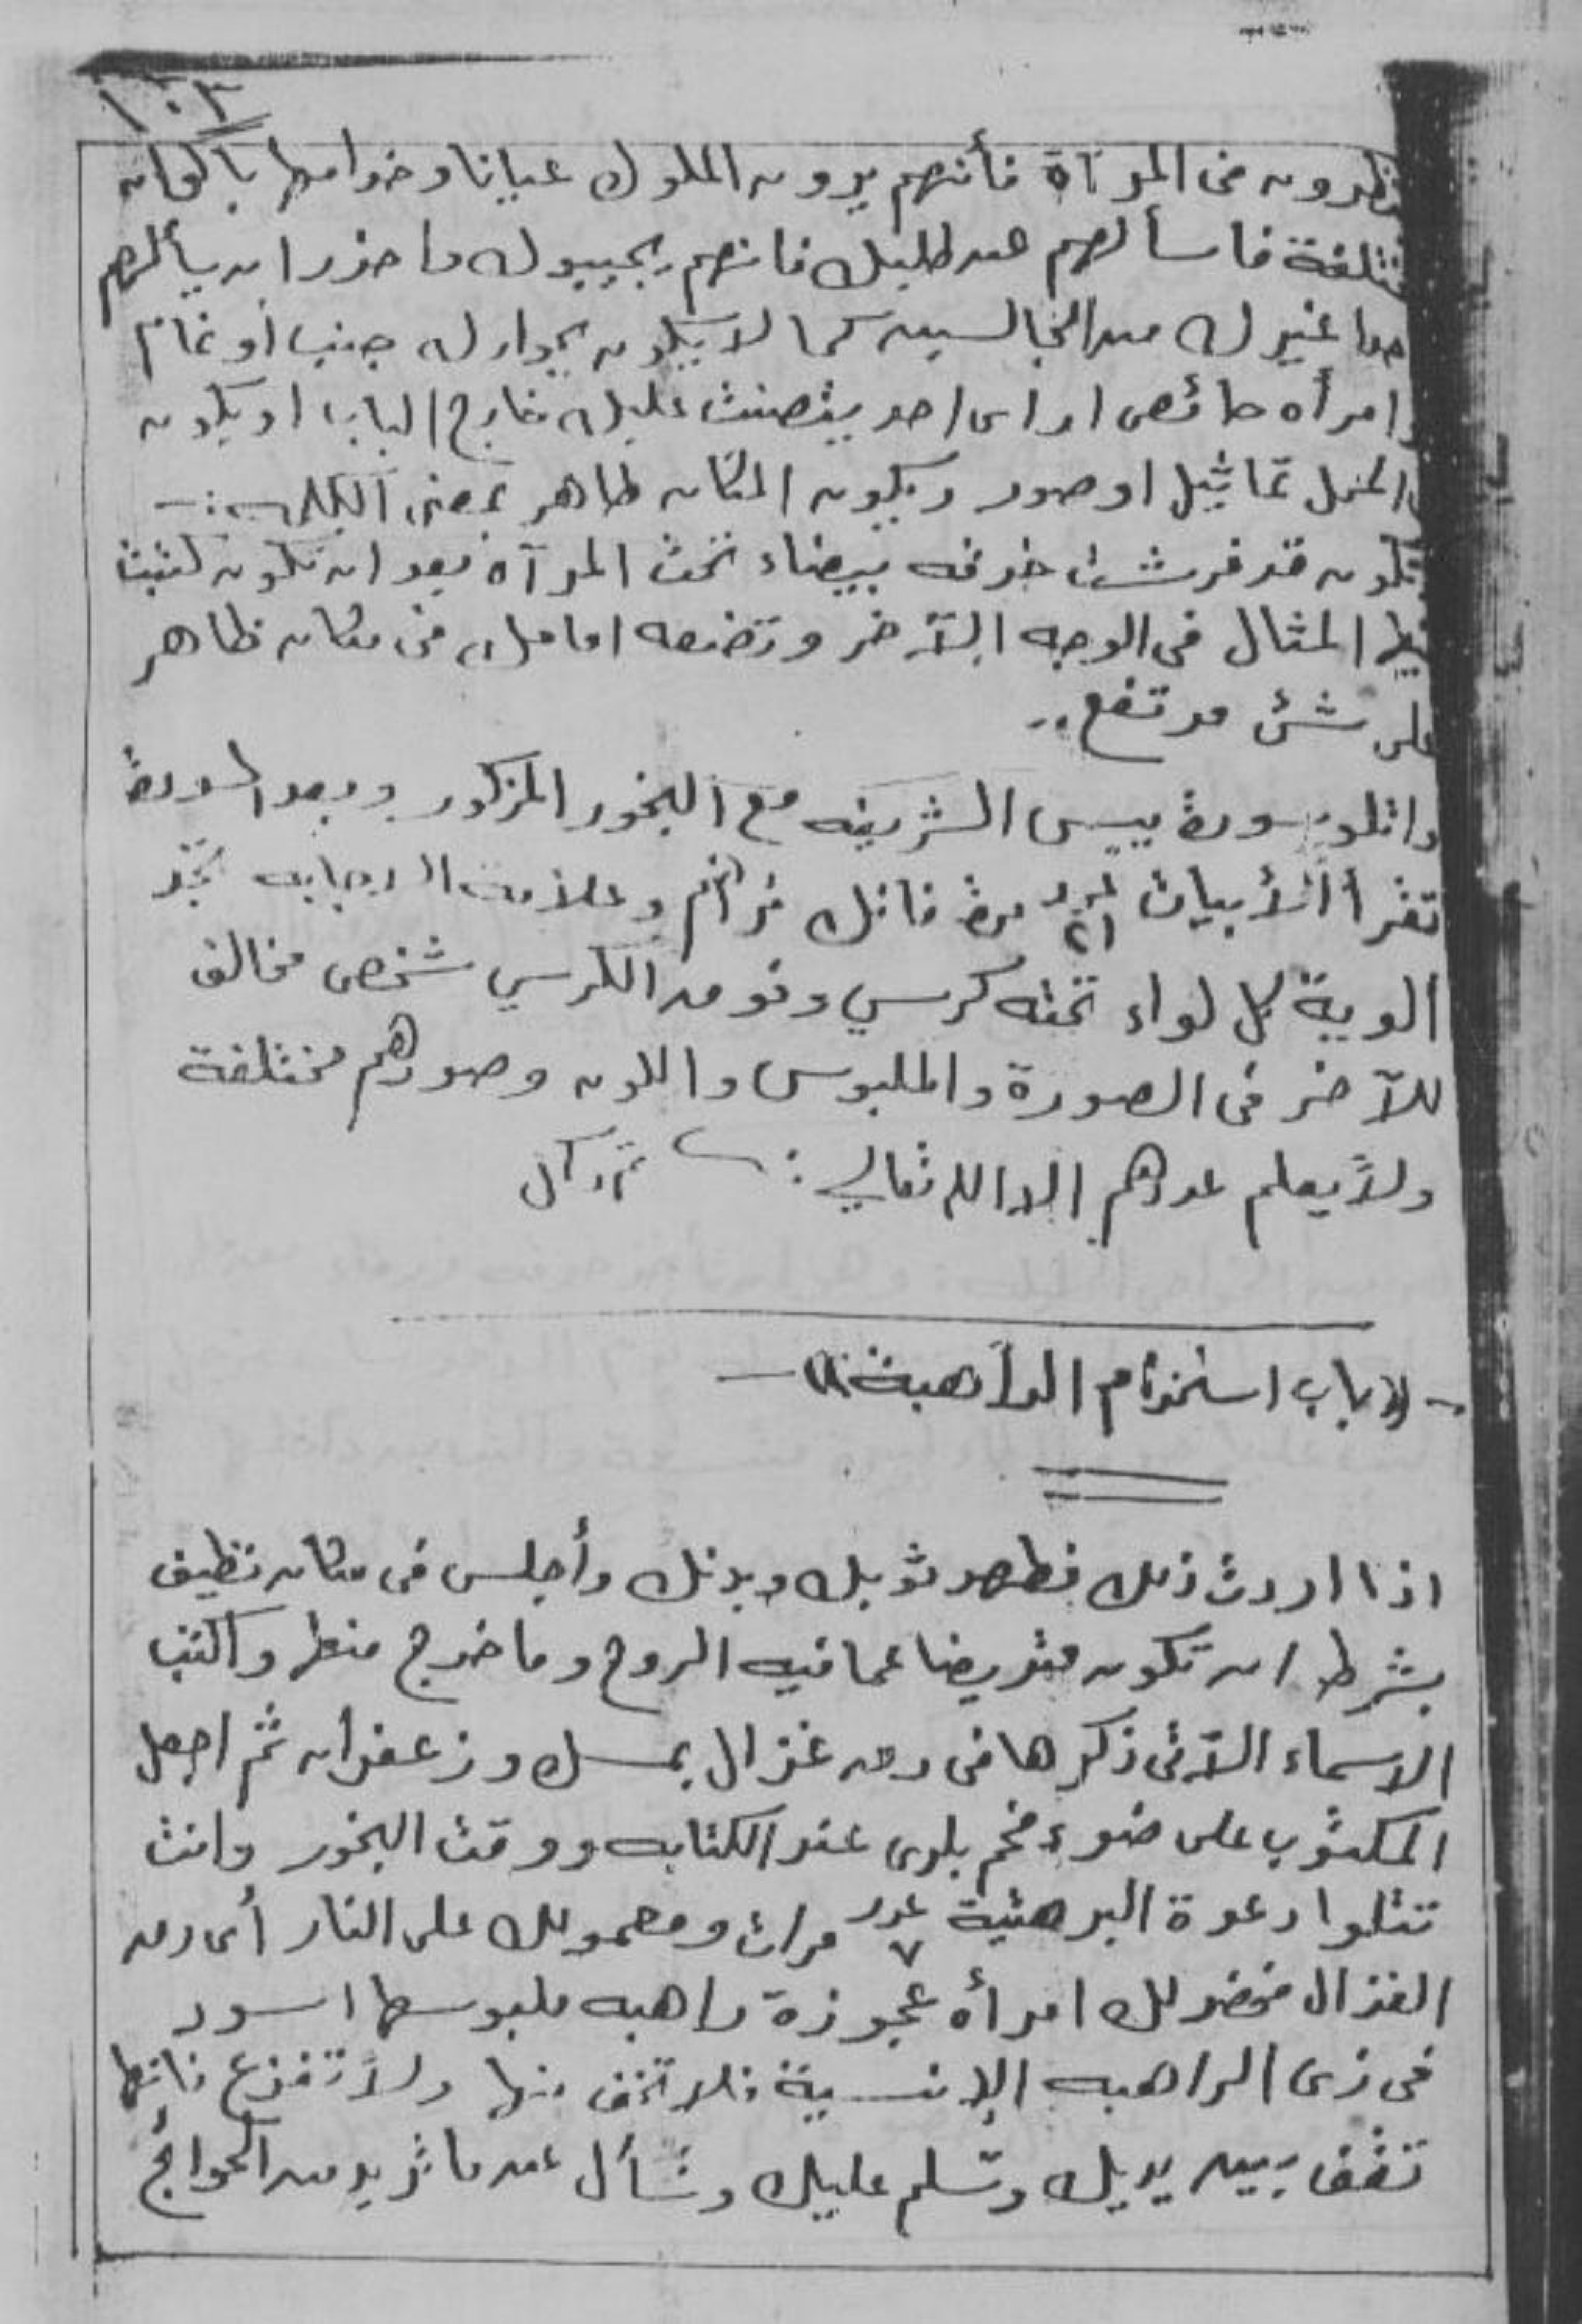 ١٠٣
ينظرون فى المرآة فأنهم يرون الملوك عيانا وخدامها بألوان
مختلفة فاسألهم عن طلبك فانهم يجيبوك وا حذر ان يسألهم
احدا غيرك من الجالسين كما لا يكون بجوارك جنب أو نمام
او امرأه حائض او اى احد يتصنت عليك خارج الباب او يكون
فى المنزل تماثيل او صور ويكون المكان طاهر بمعنى الكلمة :ـ
وتكون قد فرشت خرقه بيضاء تحت المرآه بعد ان تكون كتبت
المثال فى الوجه الآخر وتضعه امامك فى مكان ظاهر
على شئ مرتفع ..
واتلو سورة ييس الشريفه مع البخور المذكور وبعد السورة
تقرأ الأبيات عدد ٢١ مرة فانك تراهم وعلامة الاجابه تجد
ألوية كل لواء تحته كرسي وفوق الكرسي شخص مخالف
للآخر فى الصورة والملبوس واللون وصورهم مختلفة
ولا يعلم عددهم إلا الله تعالي : تم وكمل
-(( باب استخدام الراهبة ))-
اذا اردت ذلك فطهر ثوبك وبدنك وأجلس فى مكان نظيف
بشرط ان تكون متريضا عما فيه الروح وما خرج منها واكتب
الاسماء الآتى ذكرها فى رق غزال بمسك وزعفران ثم اجعل
المكتوب على ضوء فحم بلدى عند الكتابه ووقت البخور وانت
تتلوا دعوة البرهتية عدد ٧ مرات ومعمولك على النار أى رق
الغزال فتحضر لك امرأه عجوزة راهبه ملبوسها اسود
فى زى الراهبه الإنسية فلا تخف منها ولا تفزع فانها
تقف بين يديك وتسلم عليك وتسأل عن ما تريد من الحوائج